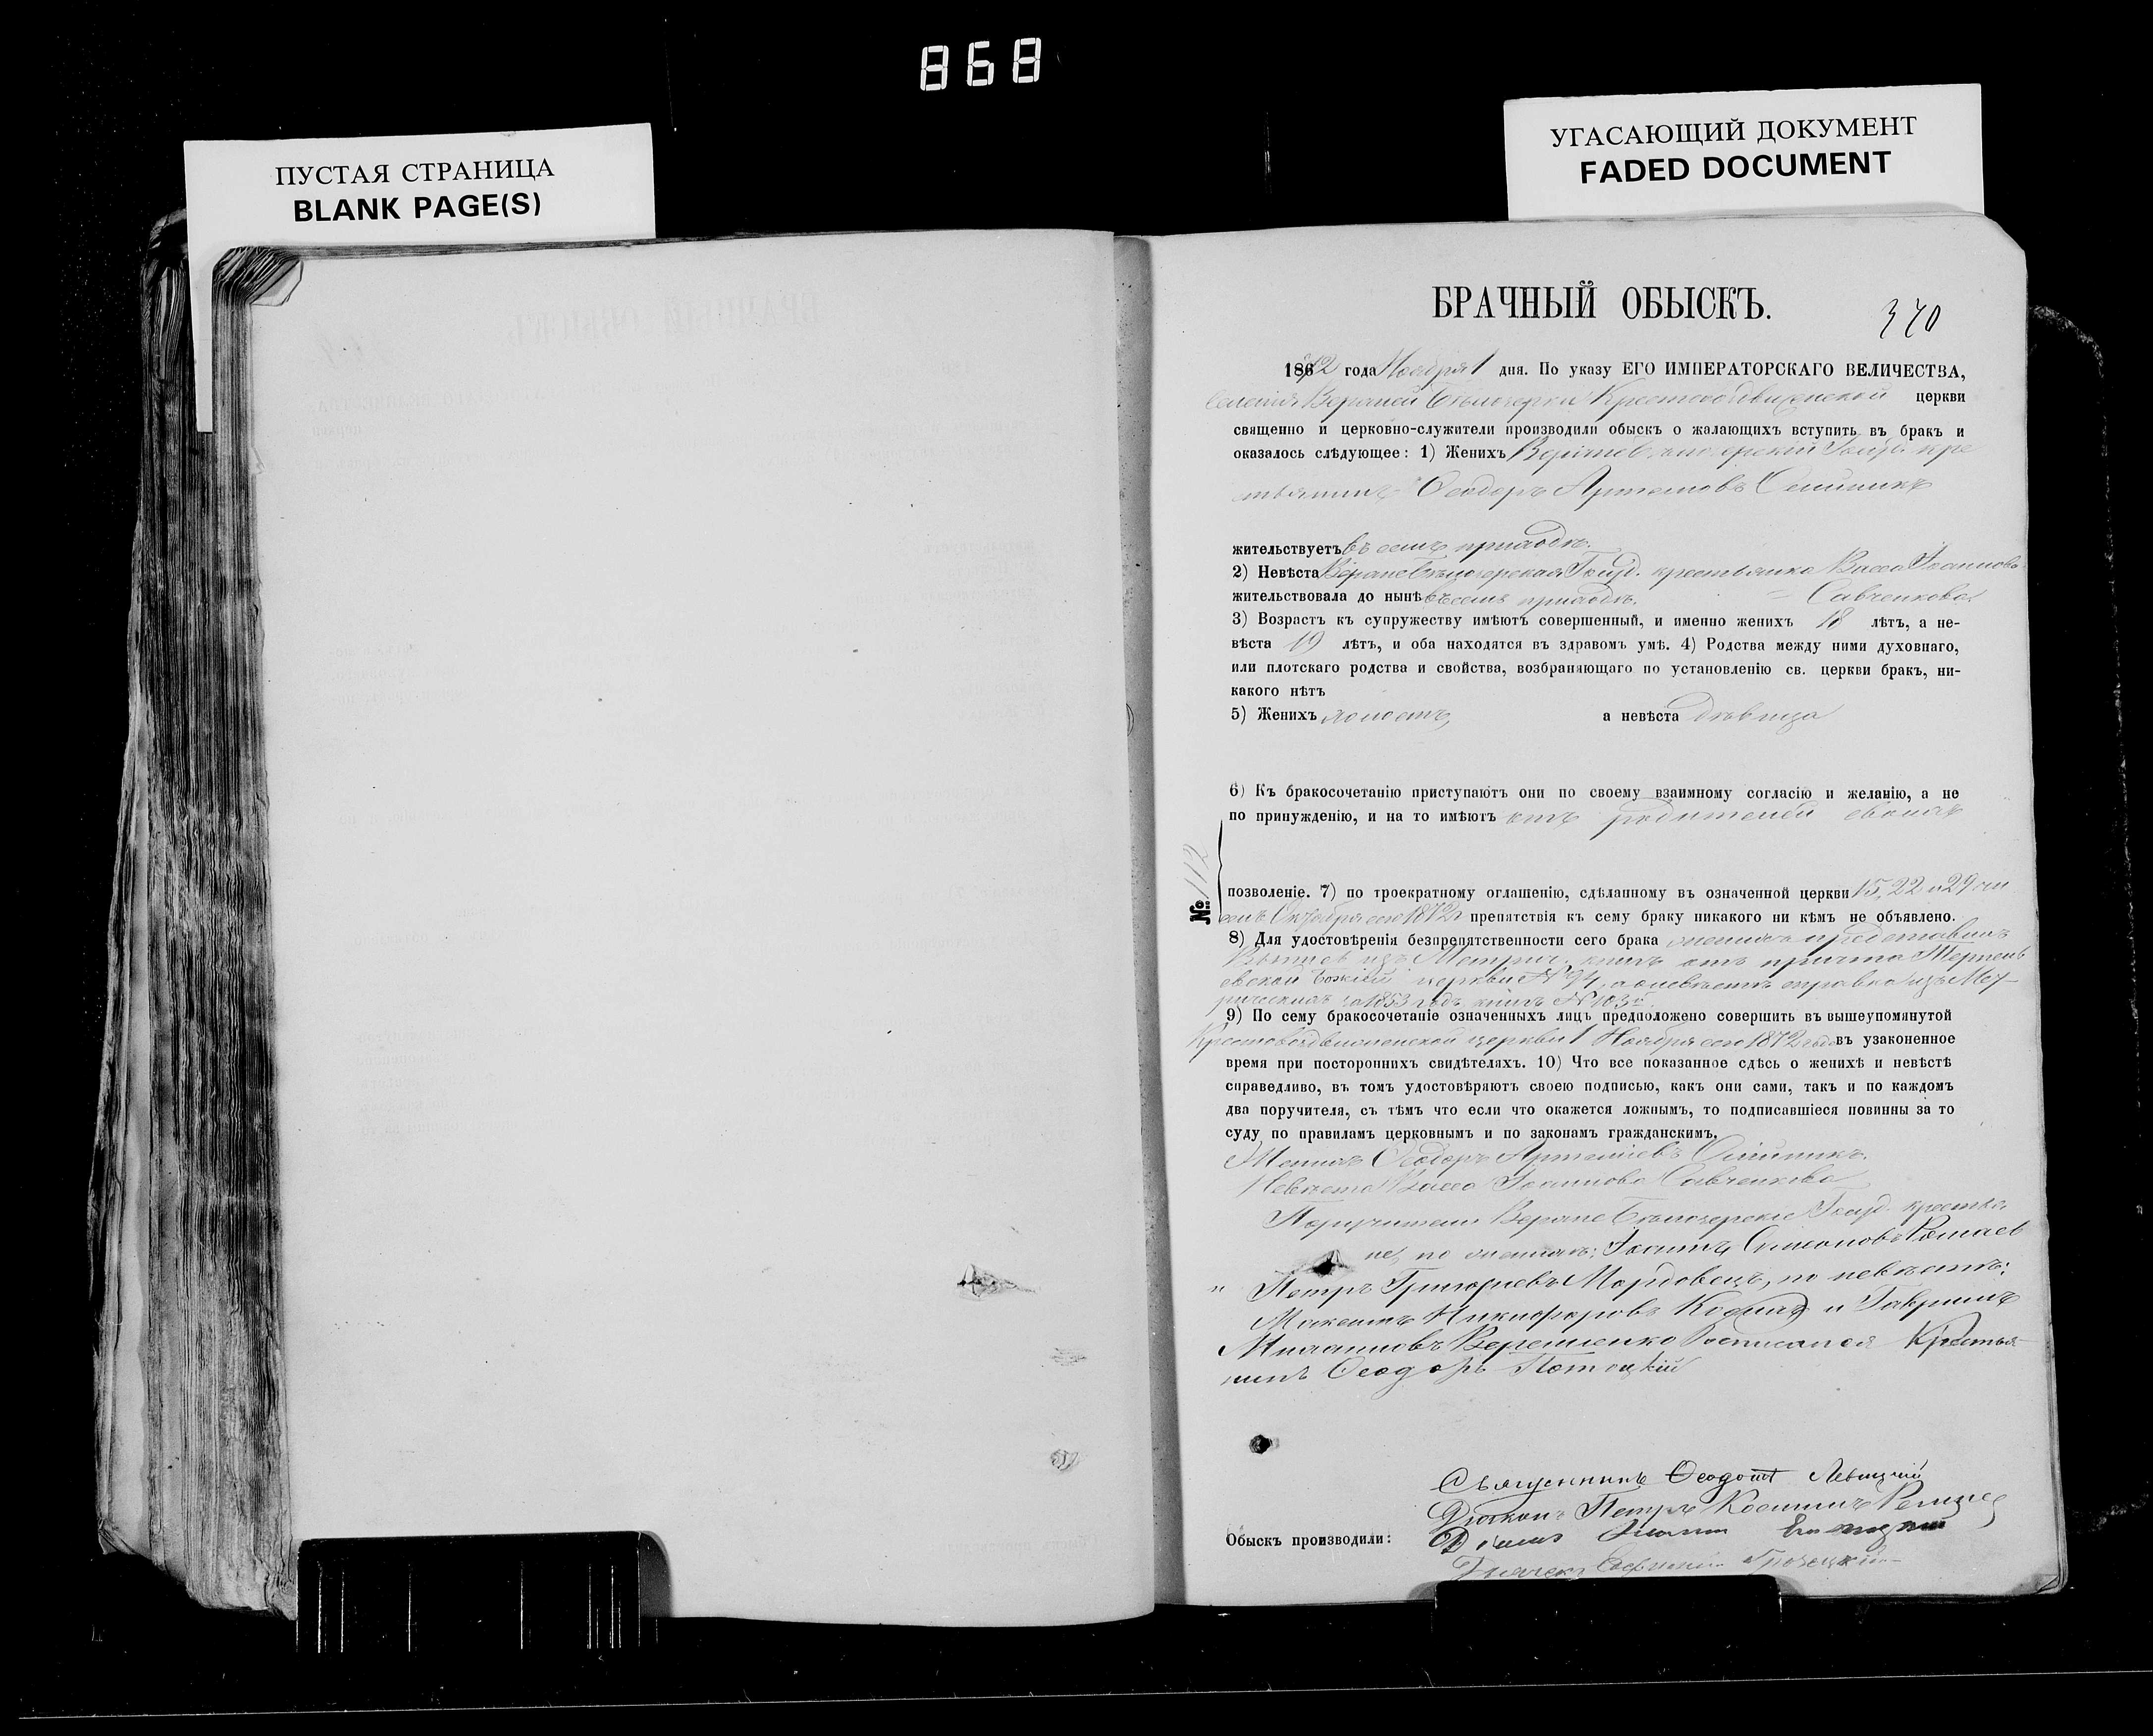 868
ПУСТАЯ СТРАНИЦА
BLANK PAGE(S)
УГАСАЮЩИЙ ДОКУМЕНТ
FADED DOCUMENT
БРАЧНЫЙ ОБЫСКЪ.
370
1872 года Ноября 1 дня. По указу ЕГО ИМПЕРАТОРСКАГО ВЕЛИЧЕСТВА,
Селенія Верхней Бѣлозерки Крестовоздвиженской церкви
священно и церковно-служители производили обыскъ о жалающихъ вступить въ бракъ и
оказалось слѣдующее: 1) Женихъ Верхне Бѣлозерскій Госуд. кре
стьянинъ Ѳеодоръ Артемовъ Олийникъ
жительствуетъ въ семъ приходѣ.
2) Невѣста Верхне Бѣлозерская Госуд. крестьянка Васса Іоаннова
жительствовала до нынѣ въ семъ приходѣ. Савченкова.
3) Возрастъ къ супружеству имѣютъ совершенный, и именно женихъ 18 лѣтъ, а не-
вѣста 19 лѣтъ, и оба находятся въ здравомъ умѣ. 4) Родства между ними духовнаго,
или плотскаго родства и свойства, возбраняющаго по установленію св. церкви бракъ, ни-
какого нѣтъ
5) Женихъ холостъ, а невѣста дѣвица
6) Къ бракосочетанію приступаютъ они по своему взаимному согласію и желанію, а не
по принужденію, и на то имѣютъ отъ родителей своихъ
№ 112
позволеніе. 7) по троекратному оглашенію, сдѣланному въ означенной церкви 15, 22 и 29 чи
селъ Октября сего 1872 г препятствія къ сему браку никакого ни кѣмъ не объявлено.
8) Для удостовѣренія безпрепятственности сего брака женихъ представилъ
изъ Метрич. книгъ отъ причта
церкви № 94, а о невѣстѣ справка изъ Мет-
рическихъ за 1853 годъ книгъ № 103й.
9) По сему бракосочетаніе означенныхъ лицъ предположено совершить въ вышеупомянутой
Крестовоздвиженской церкви 1 Ноября сего 1872 года въ узаконенное
время при постороннихъ свидѣтеляхъ. 10) Что все показанное сдѣсь о женихѣ и невѣстѣ
справедливо, въ томъ удостовѣряютъ своею подписью, какъ они сами, такъ и по каждомъ
два поручителя, съ тѣмъ что если что окажется ложнымъ, то подписавшіеся повинны за то
суду по правиламъ церковнымъ и по законамъ гражданскимъ,
Женихъ Ѳеодоръ Артеміевъ Олійникъ.
Невѣста Васса Іоаннова Савченкова
Поручители Верхне Бѣлозерскіе Госуд. крестья
не, по женихѣ: Іоаннъ Симеоновъ
и Петръ Григорьевъ Мордовецъ, по невѣстѣ:
Максимъ Никифоровъ и Гавріилъ
Верещенко Росписался Крестья
нинъ Ѳеодоръ Потоцкій
Священникъ Ѳеодотъ Левицкій
Діаконъ Петръ
Обыскъ производили:
Дьячекъ